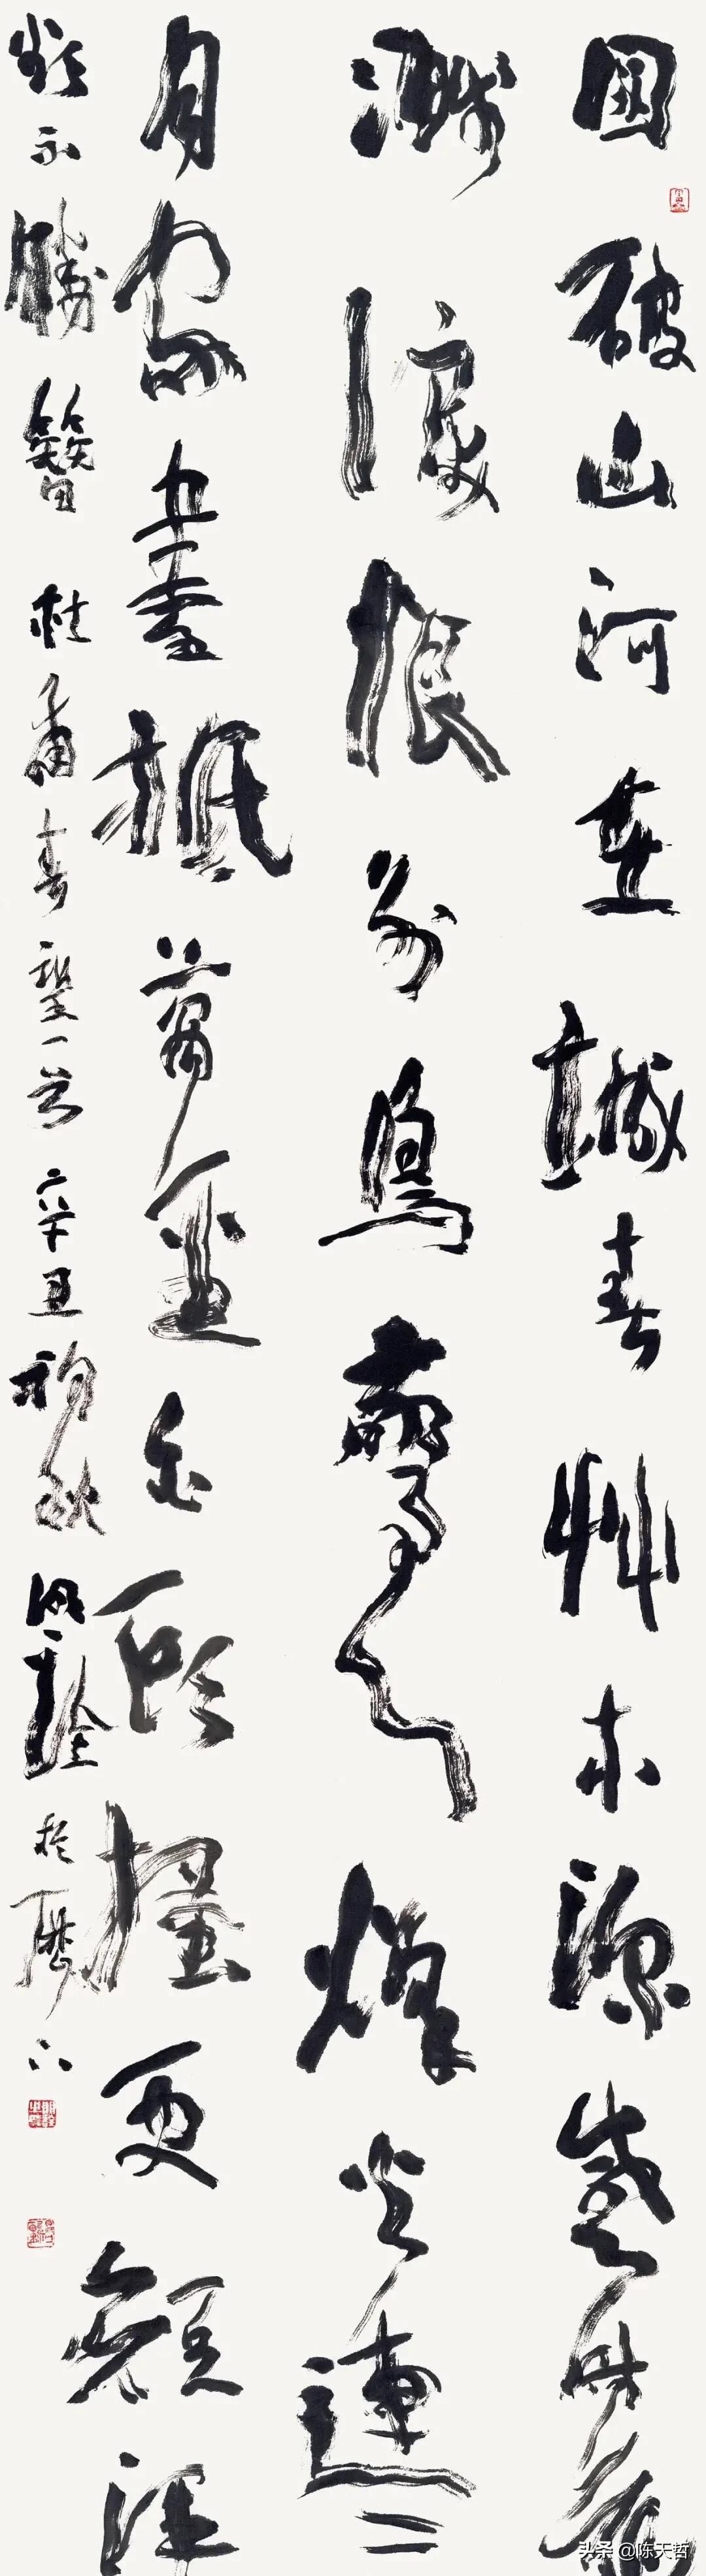 國破山河在城春艸木深感時花
濺淚恨別鳥驚心烽火連三
月家書抵萬金白頭搔更短渾
欲不勝簪 杜甫春望一首 辛丑初秋 明詮於歷下
头条 @陈天哲